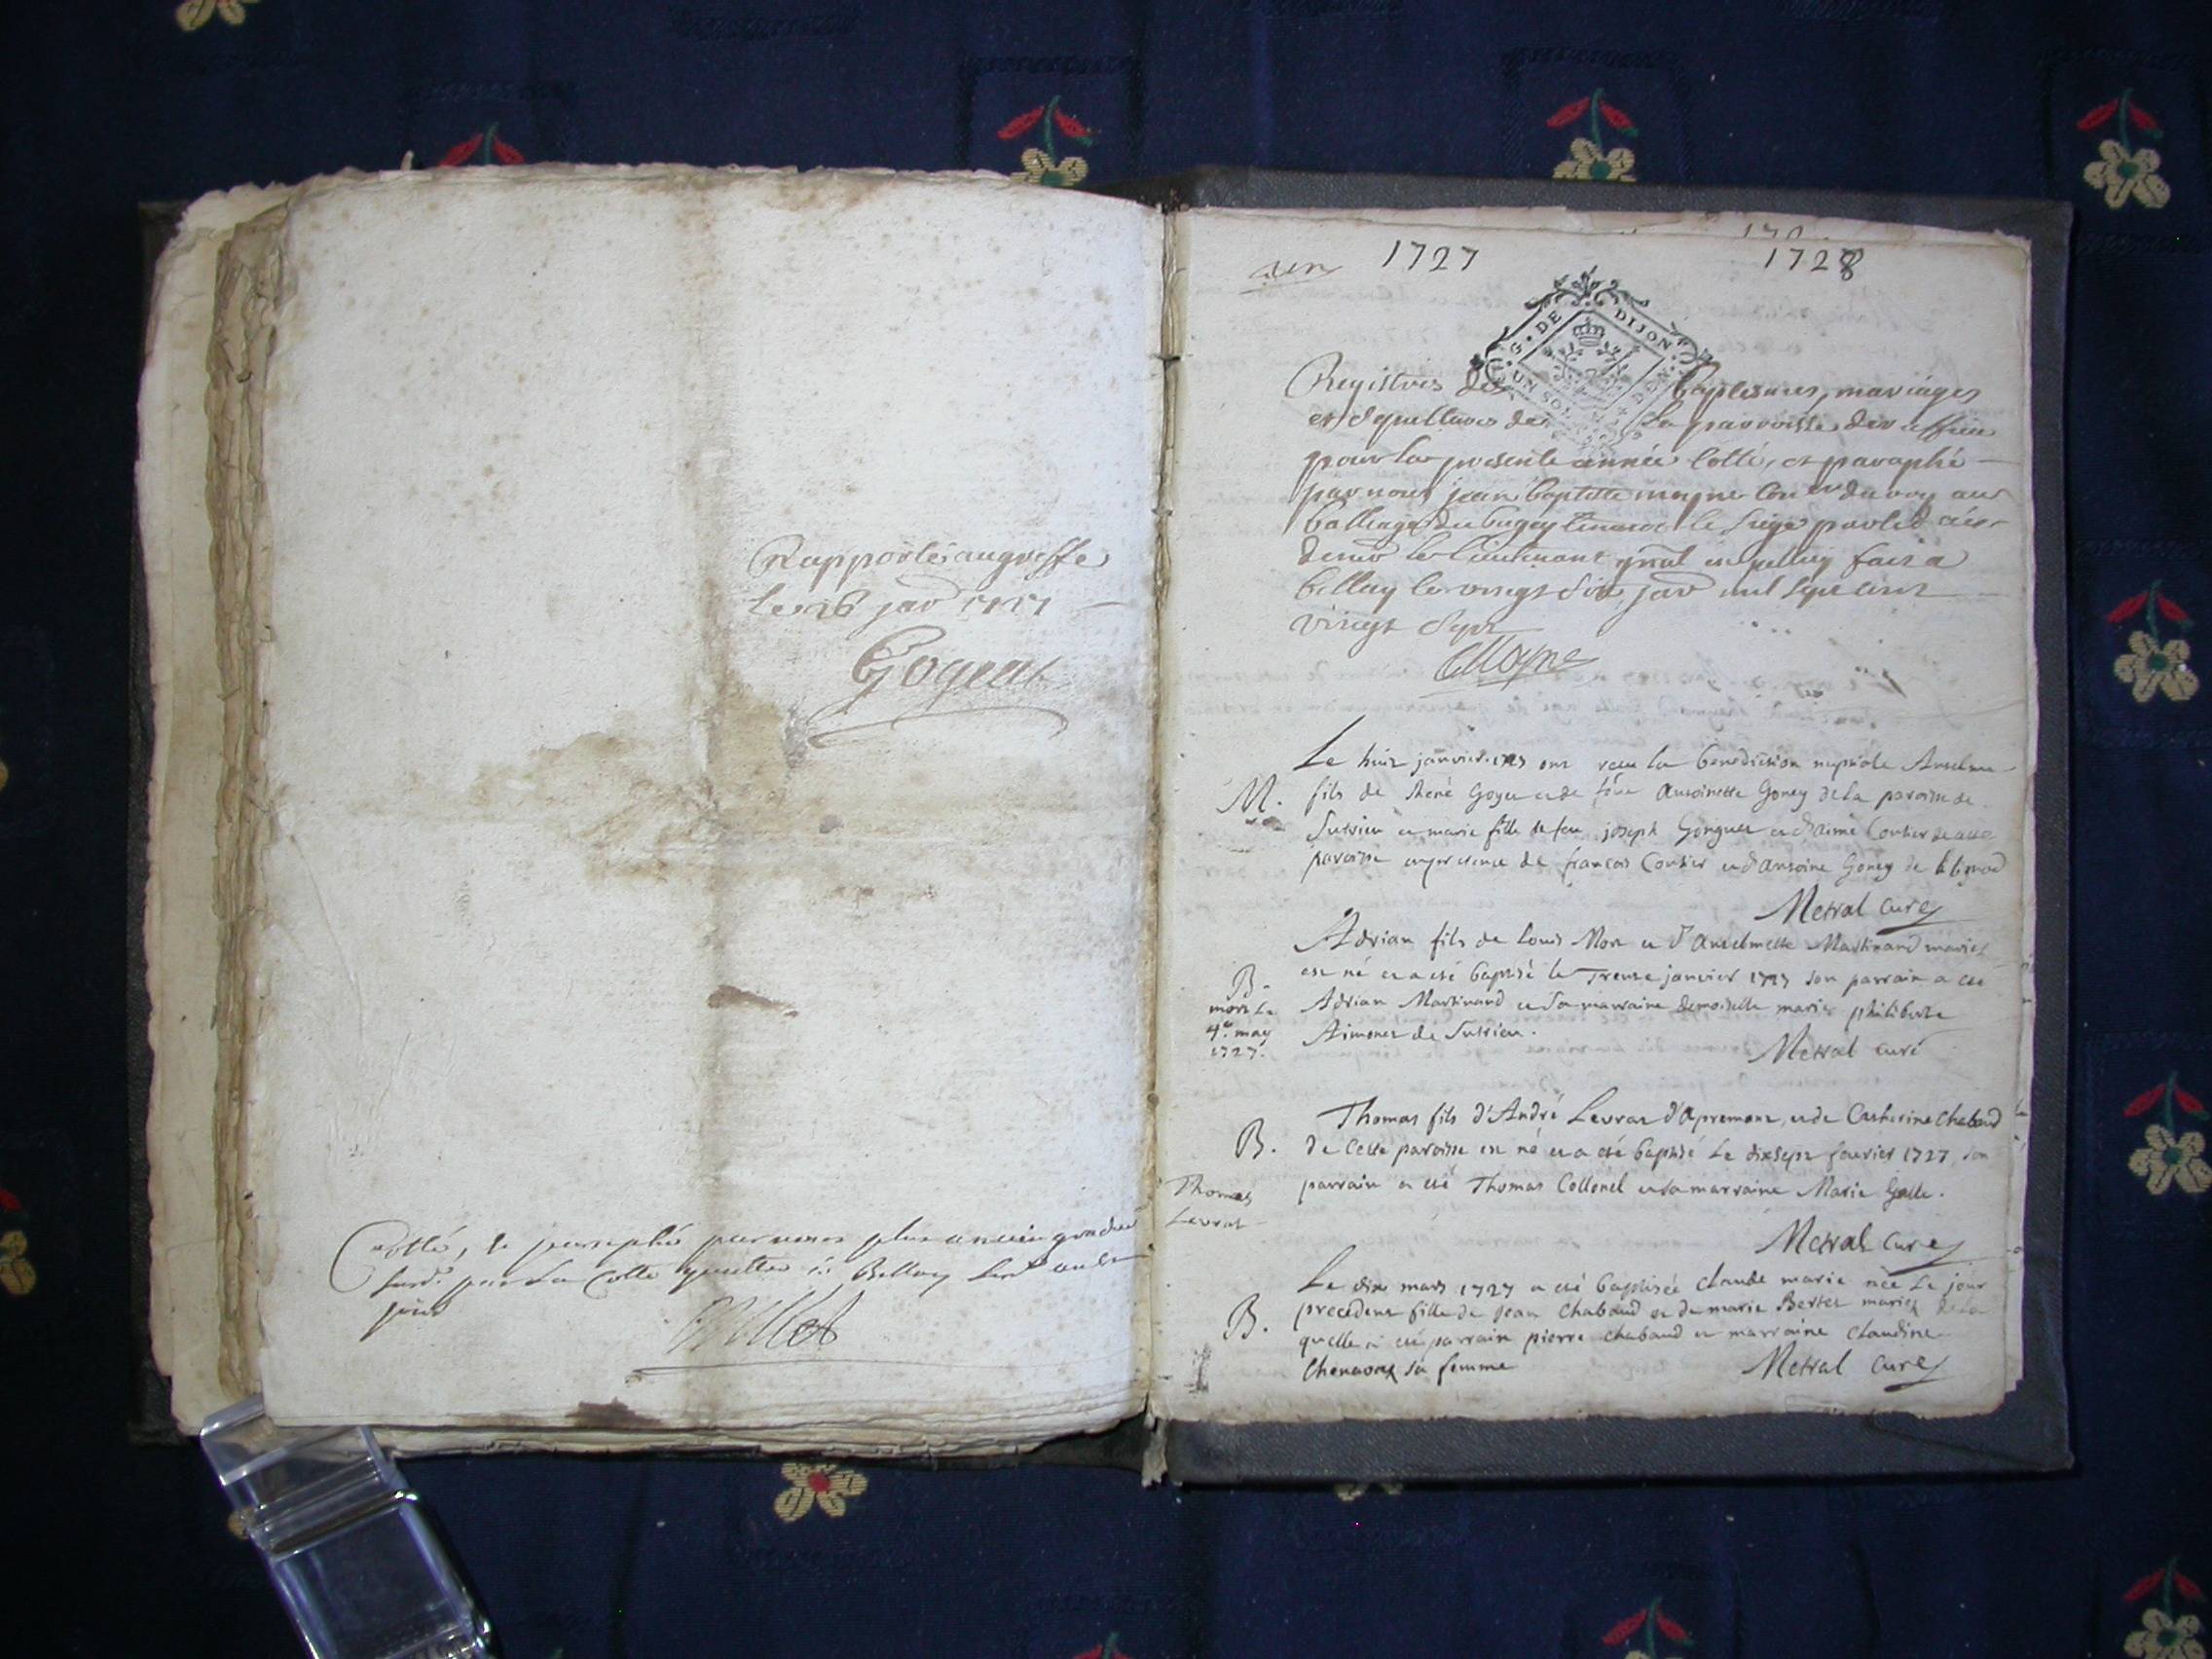 Rapporté au greffe
le 26 janv 1727
Gogeat
Cotté, & paraphé par nous plus ancien gradué
par la cotte quatre à Belley
jour
Billet
un 1727 1728
G. DE DIJON
UN SOL
Registres des baptesmes, mariages
et sépultures de la parroisse de ruffieu
pour la presente année cotté, et paraphé
par nous jean baptiste mayne du roy au
balliage du bugey le siege
le lieutenant gñal fait a
belley le vingt six janv mil sept cent
vingt sept
Mayne
Le huit janvier 1727 ont receu la benediction nuptiale Anselme
M. fils de René Goyet et de feue Antoinette Goney de la paroisse de
Sutrieu et marie fille de feu joseph Gonguet et d'aimé Coutier de cette
paroisse en presence de francois Coutier et d'antoine Goney de
Metral curé
Adrian fils de Louis Mon et d'Anselmette Martinand mariés
B. est né et a esté baptisé le Treize janvier 1727 son parrain a esté
mort le Adrian Martinand et sa marraine demoiselle marie philiberte
4e. may Aimonet de Sutrieu.
1727. Metral curé
Thomas fils d'André Levrat d'apremont, et de Catherine Chabaud
B. de cette paroisse est né et a esté baptisé Le dixsept fevrier 1727, son
Thomas parrain a esté Thomas Collonel et sa marraine Marie Galle.
Levrat
Metral curé
Le dix mars 1727 a esté baptisée claude marie née le jour
B. precedent fille de jean chabaud et de marie Bertet mariés de la
quelle a esté parrain pierre chabaud et marraine claudine
chenavax sa femme Metral curé